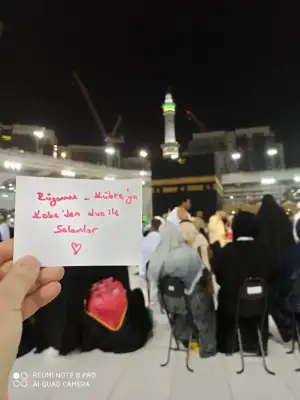 Rüyamsın - Kübra'ya
Kabe'den dua ile
Selamlar
REDMI NOTE 8 PRO
AI QUAD CAMERA